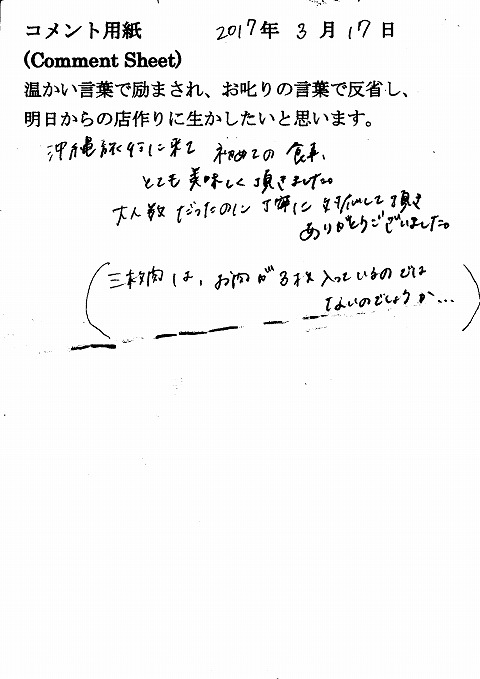 コメント用紙 2017年 3月17日
(Comment Sheet)
温かい言葉で励まされ、お叱りの言葉で反省し、
明日からの店作りに生かしたいと思います。
沖縄旅行に来て 初めての食事、
とても美味しく頂きました。
大人数だったのに丁寧に対応して頂き
ありがとうございました。
(三枚肉は、お肉が3枚入っているのでは
ないのでしょうか…)